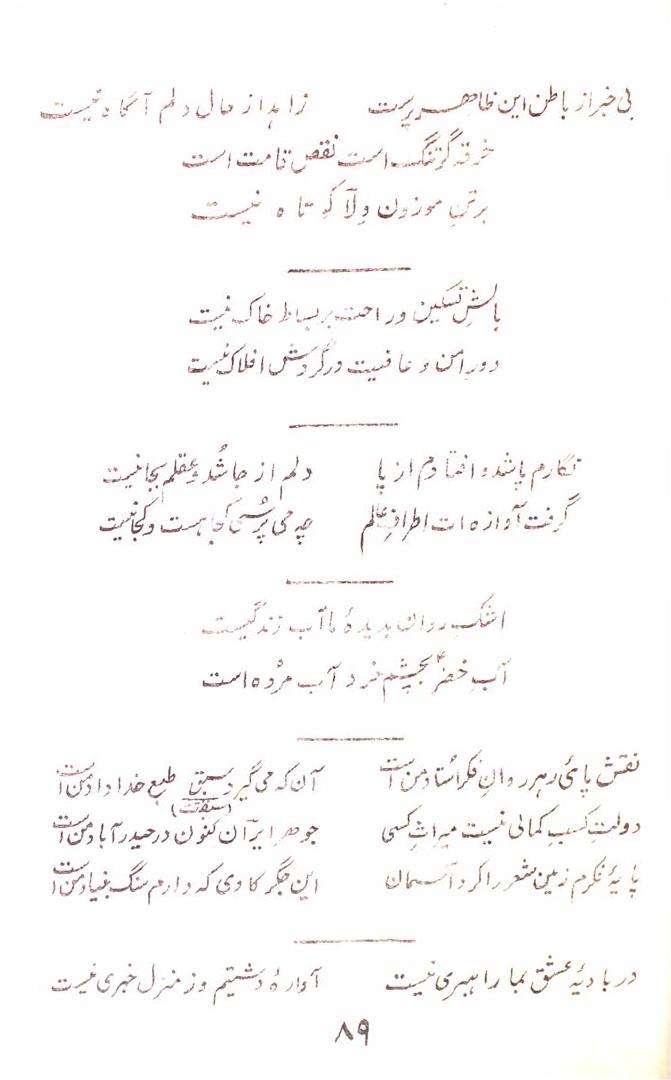 بی خبر از باطن این ظاهر پرست زاهد از حال دلم آگاه نیست
خرقه گر تنگ است نقص قامت است
بر تنِ موزون ولّا کوتاه نیست
بالشِ تسکین و راحت بر بساط خاک نیست
دور امن و عافیت در گردش افلاک نیست
نگارم پا شد و افتادم از پا دلم از جا شُد و عقلم بجا نیست
گرفت آوازه ات اطرافِ عالم چه می پُرسی کجا هست و کجا نیست
اشکِ روان بدیدهٔ ما آب زندگیست
آبِ خضرؑ بچشمِ خرد آب مرُده است
نقش پائ رهروانِ فکر اُستاد من است آن که می گیرد سبق طبع خداداد من است
(سبقت)
دولتِ کسبِ کمالی نیست میراثِ کسی جوهر ایران کنون در حیدرآباد من است
پایهٔ فکرم زمین شعر را کرد آسمان این جگر کاوی که دارم سنگ بنیاد من است
در بادیهٔ عشق بما راهبری نیست آوارهٔ دشتیم و ز منزل خبری نیست
۸۹